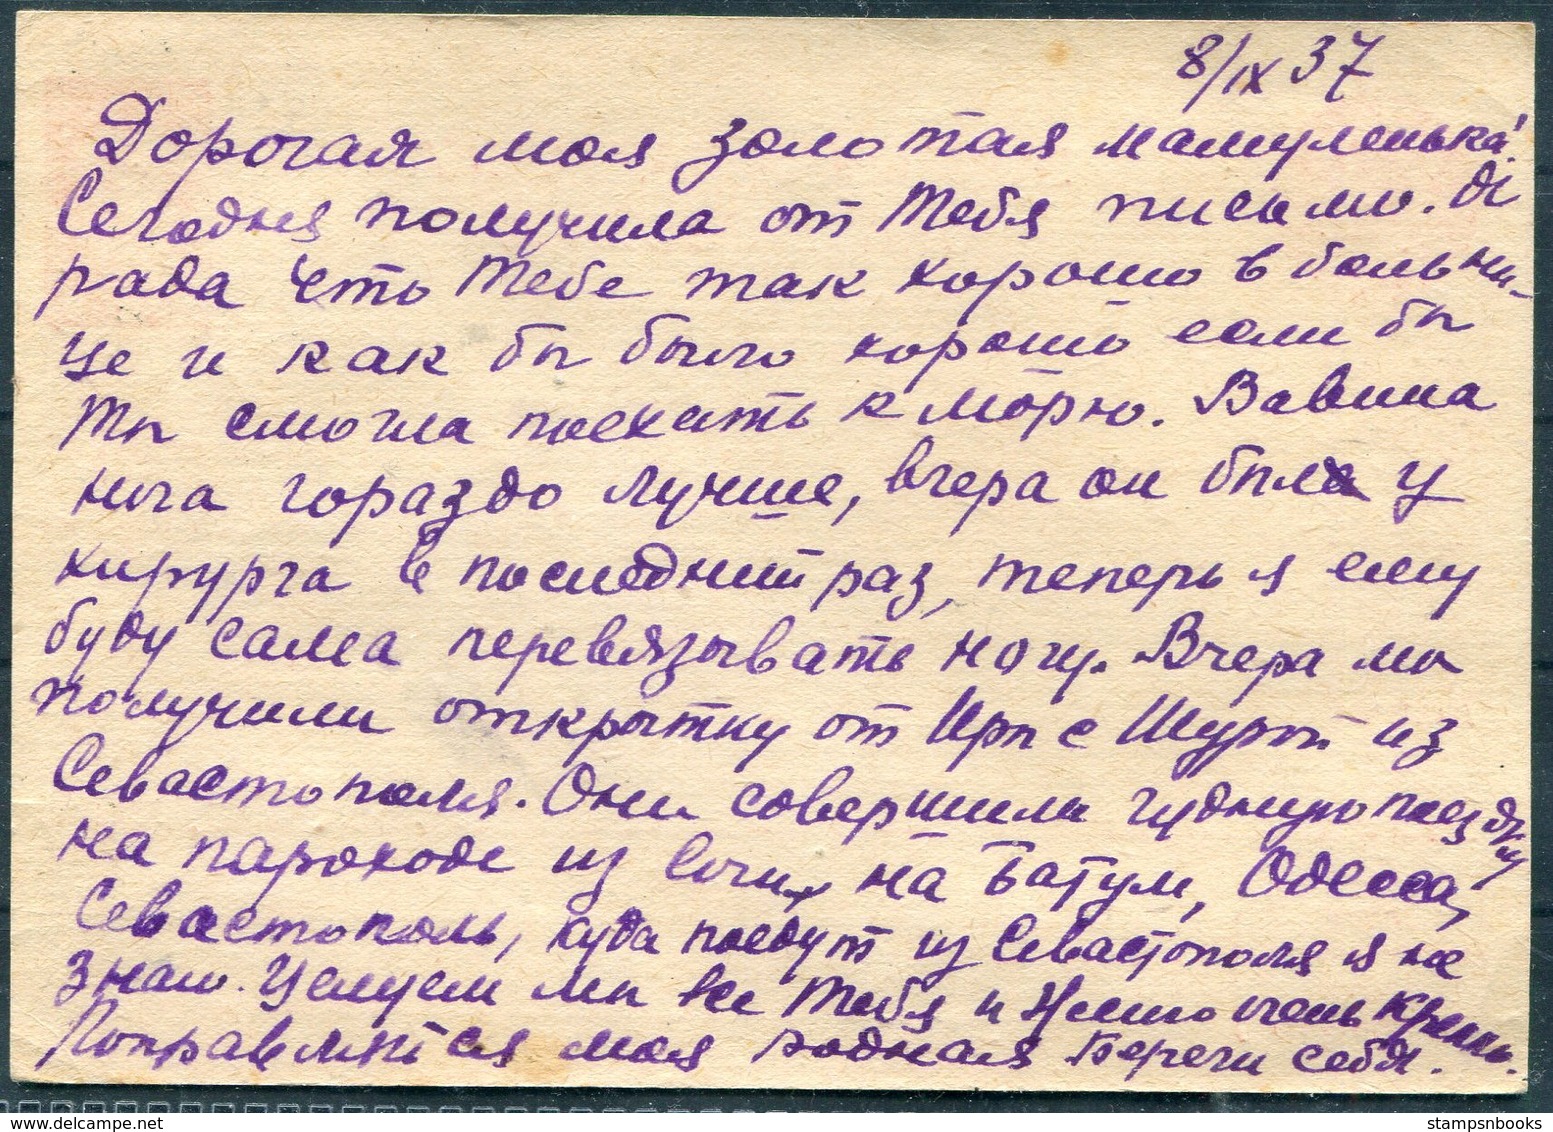 8/IX 37
Дорогая моя золотая мамуленька!
Сегодня получила от Тебя письмо. Я
рада что Тебе так хорошо в больни-
це и как бы было хорошо если бы
Ты смогла поехать к морю. Вавина
нога гораздо лучше, вчера он был у
хирурга в последний раз, теперь я ему
буду сама перевязывать ногу. Вчера мы
получили открытку от Иры с Шурой из
Севастополя. Они совершили чудную поездку
на пароходе из Сочи на Батум, Одесса,
Севастополь, куда поедут из Севастополя я не
знаю. Целуем мы все Тебя и очень крепко.
Поправляйся моя родная Береги себя.
stampsnbooks